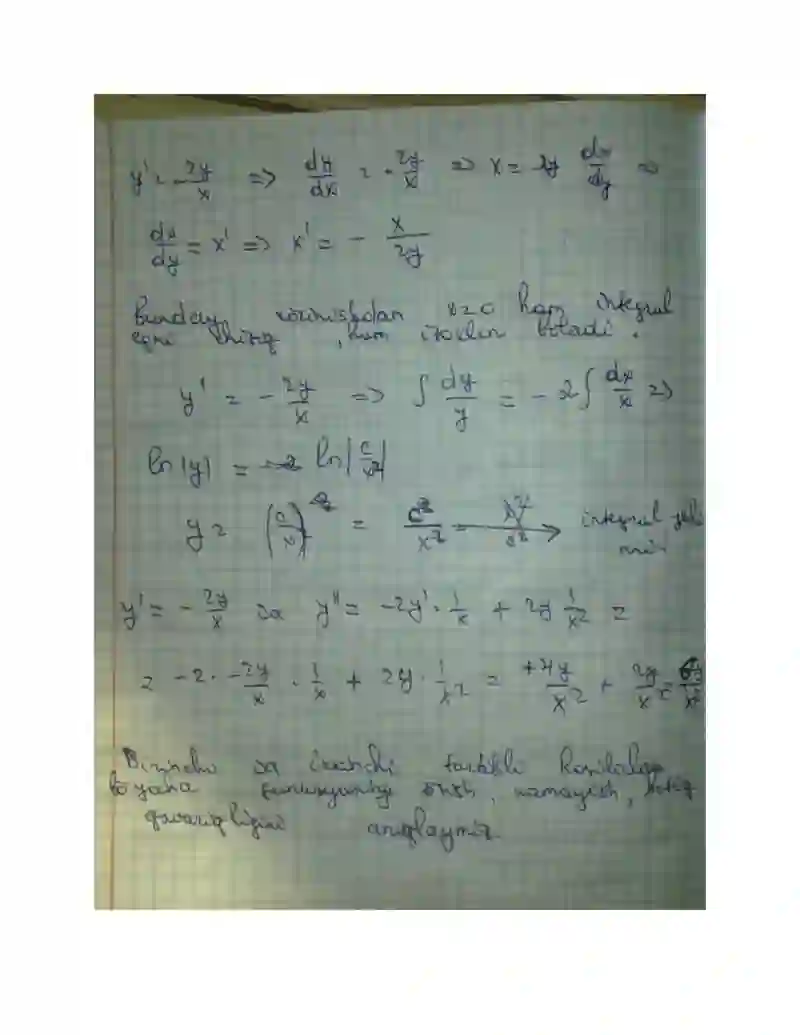 y' = -2y/x => dy/dx = -2y/x => x = -2y dx/dy =>
dx/dy = x' => x' = - x/2y
Bunday x=0 ham integral
egri chiziq, ham bo'ladi.
y' = -2y/x => ∫ dy/y = -2 ∫ dx/x =>
ln|y| = ln|c/x²|
y = (c/x)² = c²/x² → integral
y' = -2y/x va y'' = -2y' · 1/x + 2y 1/x² =
= -2 · -2y/x · 1/x + 2y · 1/x² = +4y/x² + 2y/x² = 6y/x²
Birinchi va ikkinchi tartibli hosilalarga
ko'ra funksiyaning o'sish, kamayish, botiq
qavariqligini aniqlaymiz